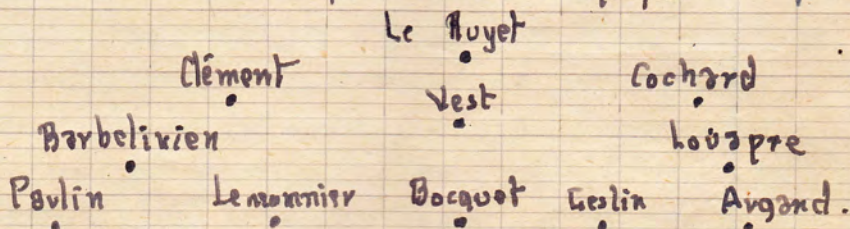 Le Ruyet
Clément Cochard
Vest
Barbelivien Louapre
Paulin Lemonnier Bocquet Geslin Argand.